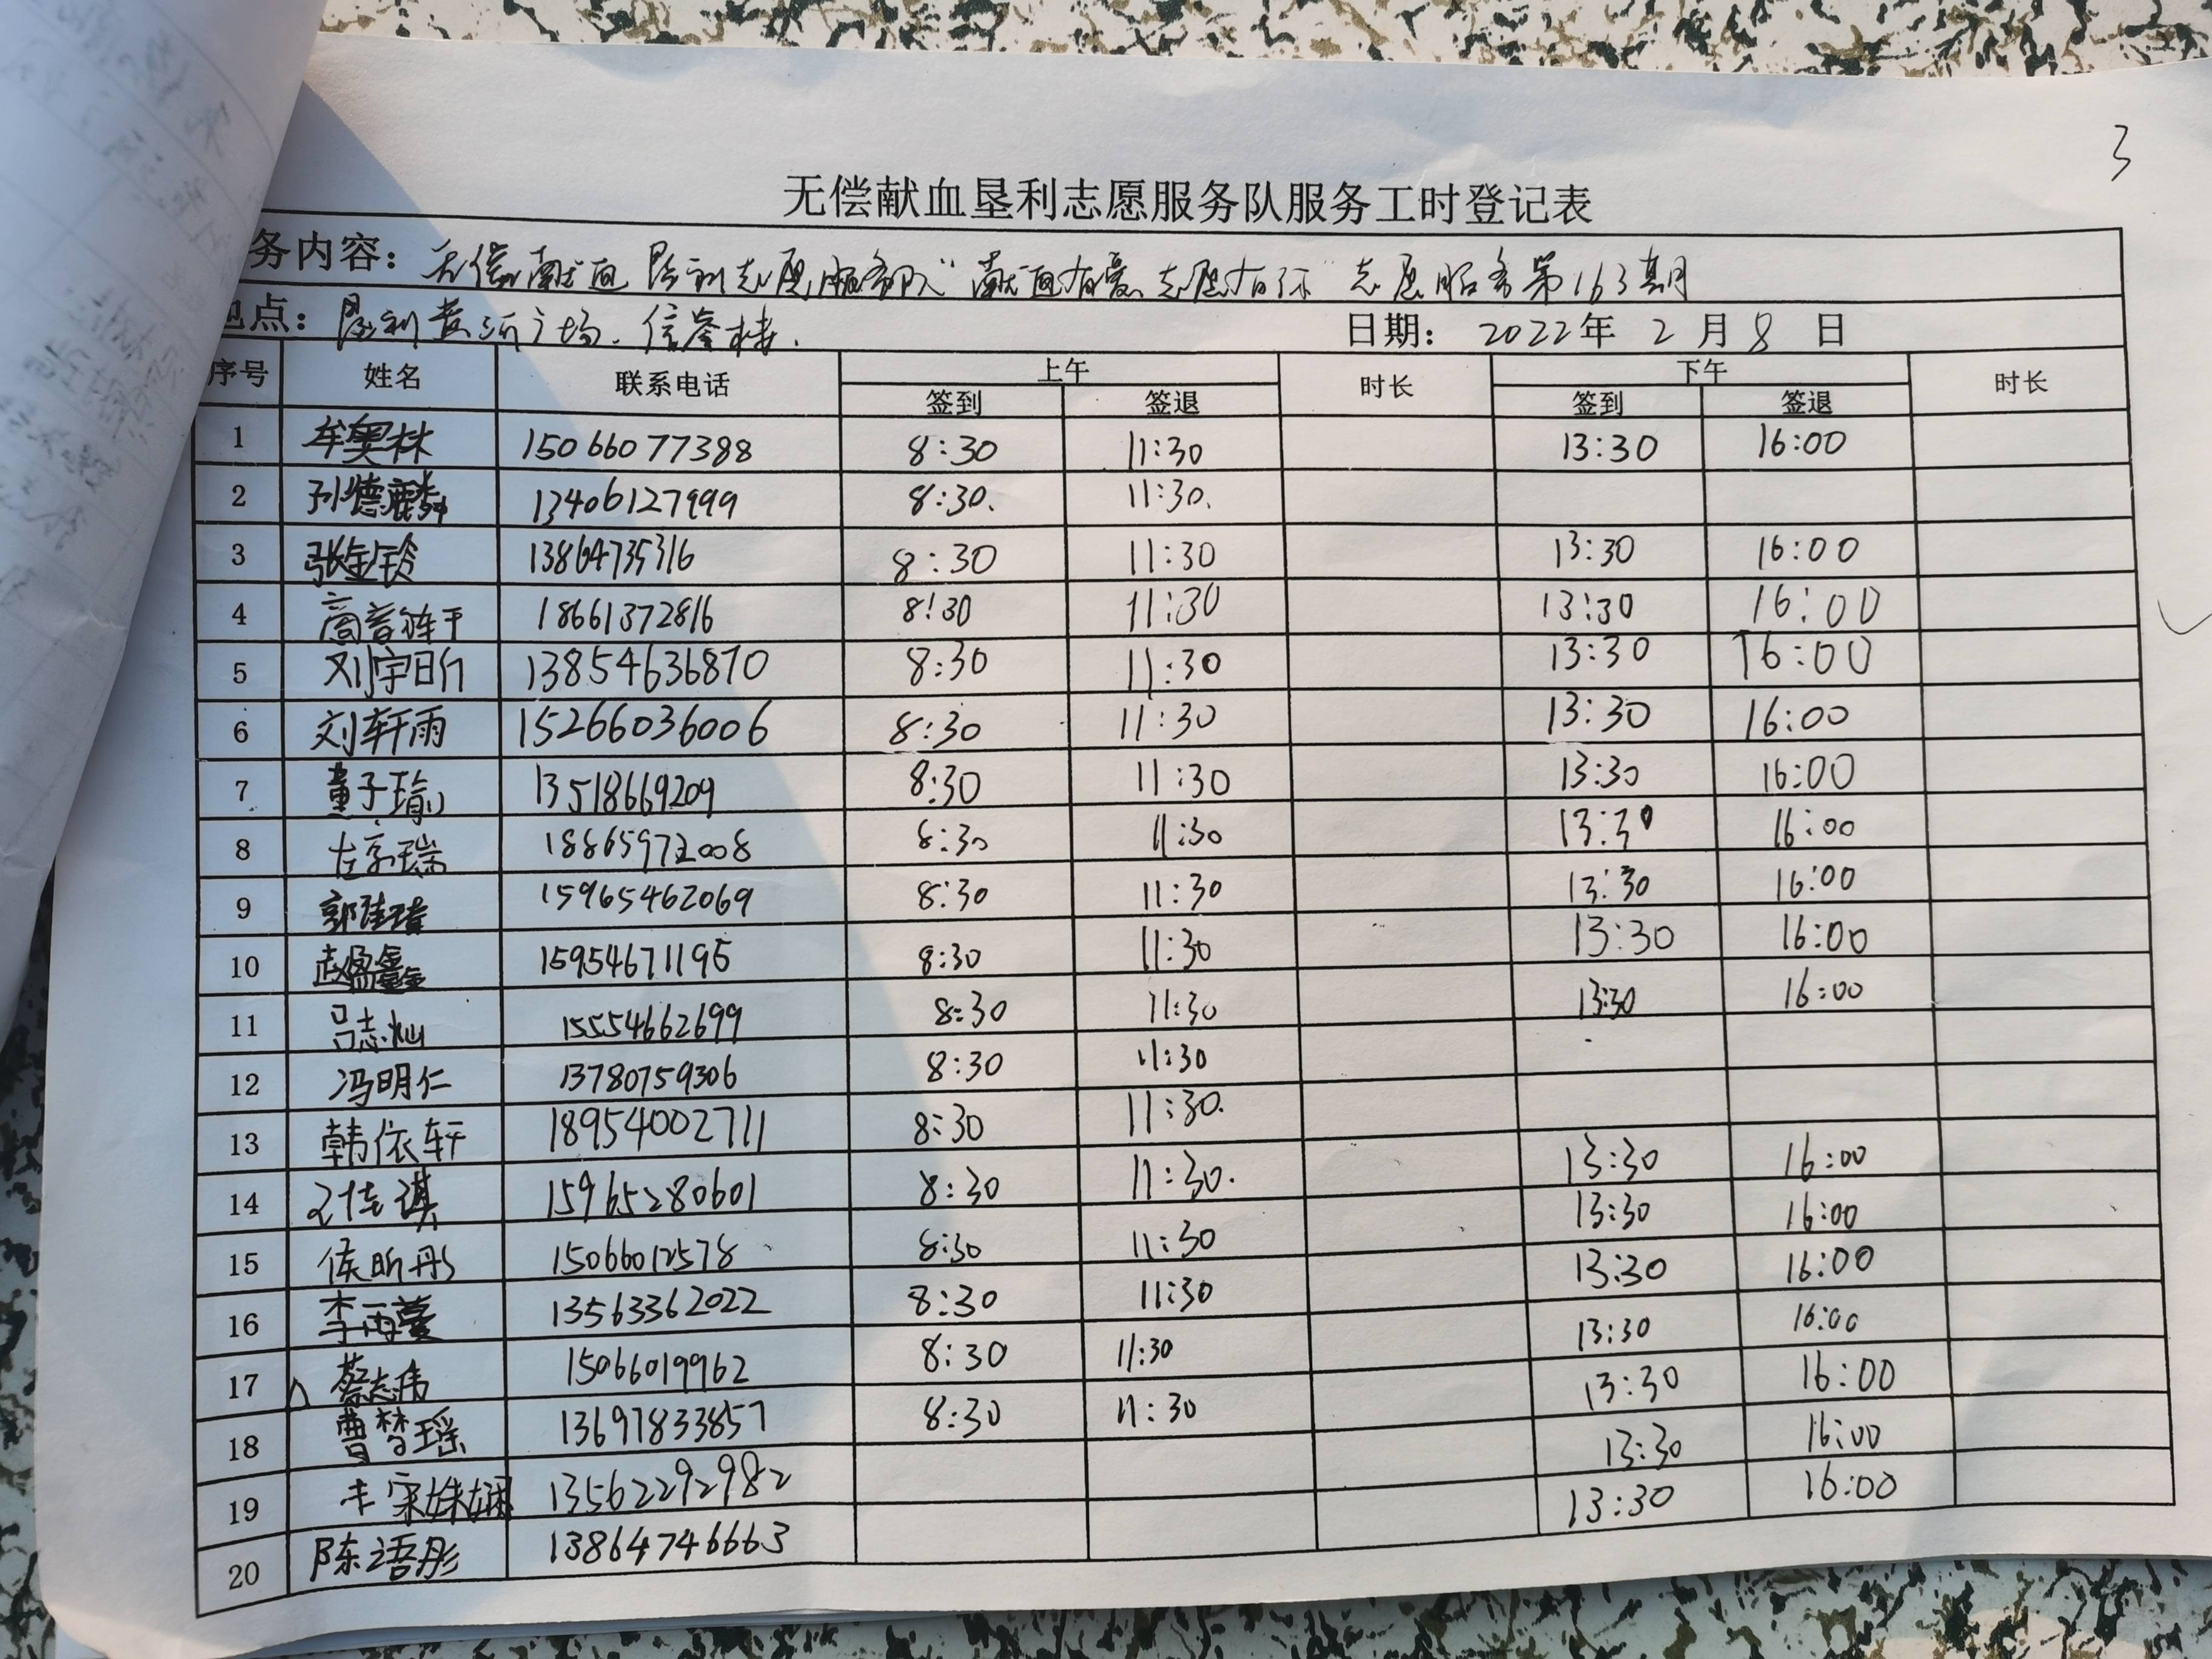 3
无偿献血垦利志愿服务队服务工时登记表
务内容：无偿献血垦利志愿服务队"献血有爱、志愿有你"志愿服务第163期
地点：垦利黄河广场、信誉楼. 日期：2022年 2 月 8 日
序号 姓名 联系电话 上午 时长 下午 时长
签到 签退 签到 签退
1 牟奥林 15066077388 8:30 11:30 13:30 16:00
2 孙德麟 13406127999 8:30. 11:30.
3 张金铃 13864735316 8:30 11:30 13:30 16:00
4 高 18661372816 8:30 11:30 13:30 16:00
5 刘宇昕 13854636870 8:30 11:30 13:30 16:00
6 刘轩雨 15266036006 8:30 11:30 13:30 16:00
7 董子瑜 13518669209 8:30 11:30 13:30 16:00
8 左京瑞 18865972008 8:30 11:30 13:30 16:00
9 郭 15965462069 8:30 11:30 13:30 16:00
10 赵盈鑫 15954671195 8:30 11:30 13:30 16:00
11 吕志灿 15554662699 8:30 11:30 13:30 16:00
12 冯明仁 13780759306 8:30 11:30
13 韩依轩 18954002711 8:30 11:30.
14 佳琪 15965280601 8:30 11:30. 13:30 16:00
15 侯昕彤 15066012578 8:30 11:30 13:30 16:00
16 李雨蔓 13563362022 8:30 11:30 13:30 16:00
17 蔡志伟 15066019962 8:30 11:30 13:30 16:00
18 曹梦瑶 13697833857 8:30 11:30 13:30 16:00
19 宋姝娴 13562292982 13:30 16:00
20 陈语彤 13864746663 13:30 16:00